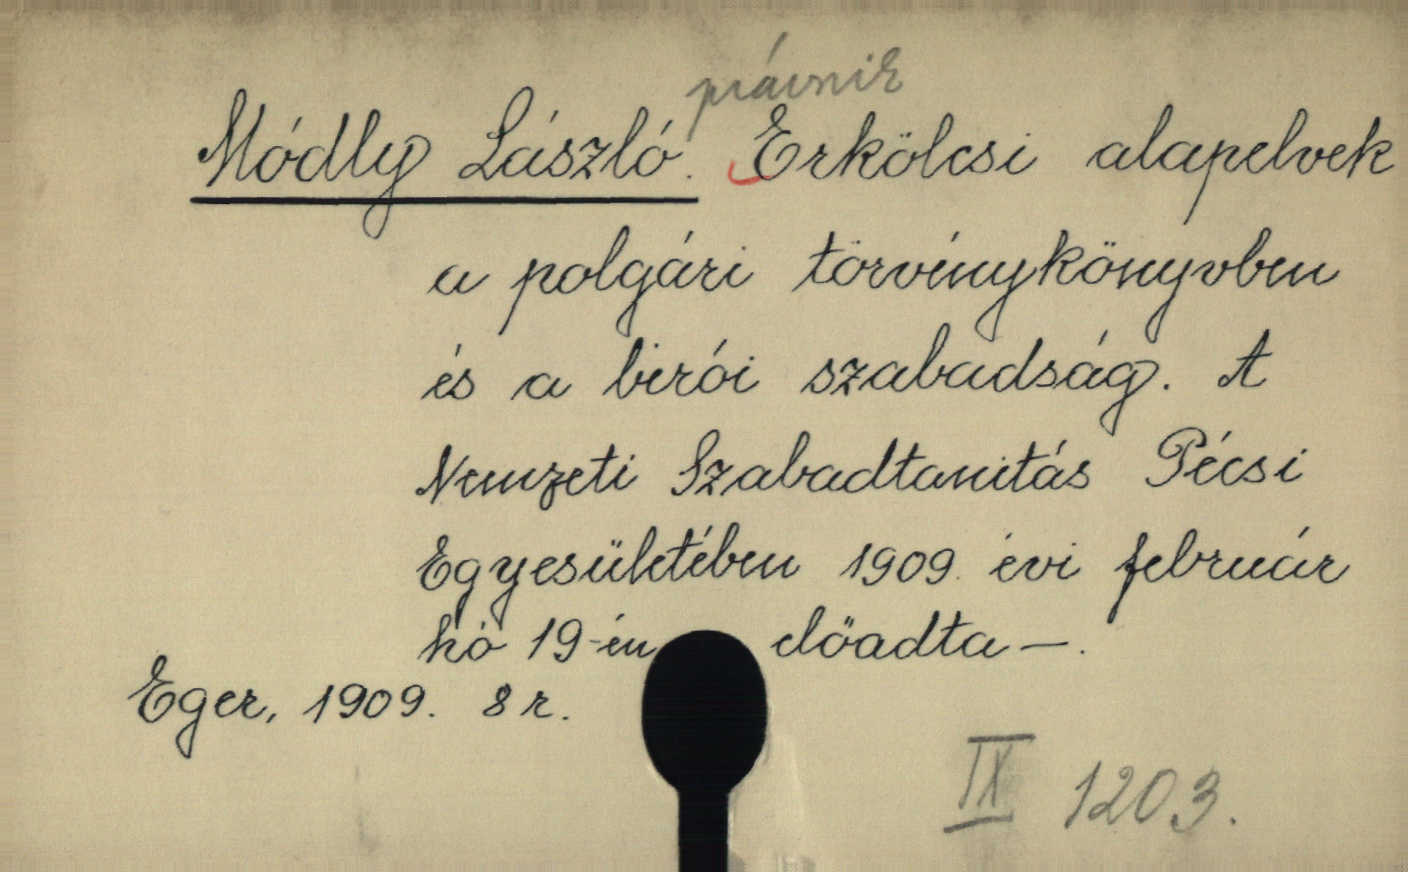 právnik
Módly László. Erkölcsi alapelvek
a polgári törvénykönyvben
és a birói szabadság. A
Nemzeti Szabadtanitás Pécsi
Egyesületében 1909. évi február
hó 19-én előadta —.
Eger, 1909. 8 r.
IX 1203.